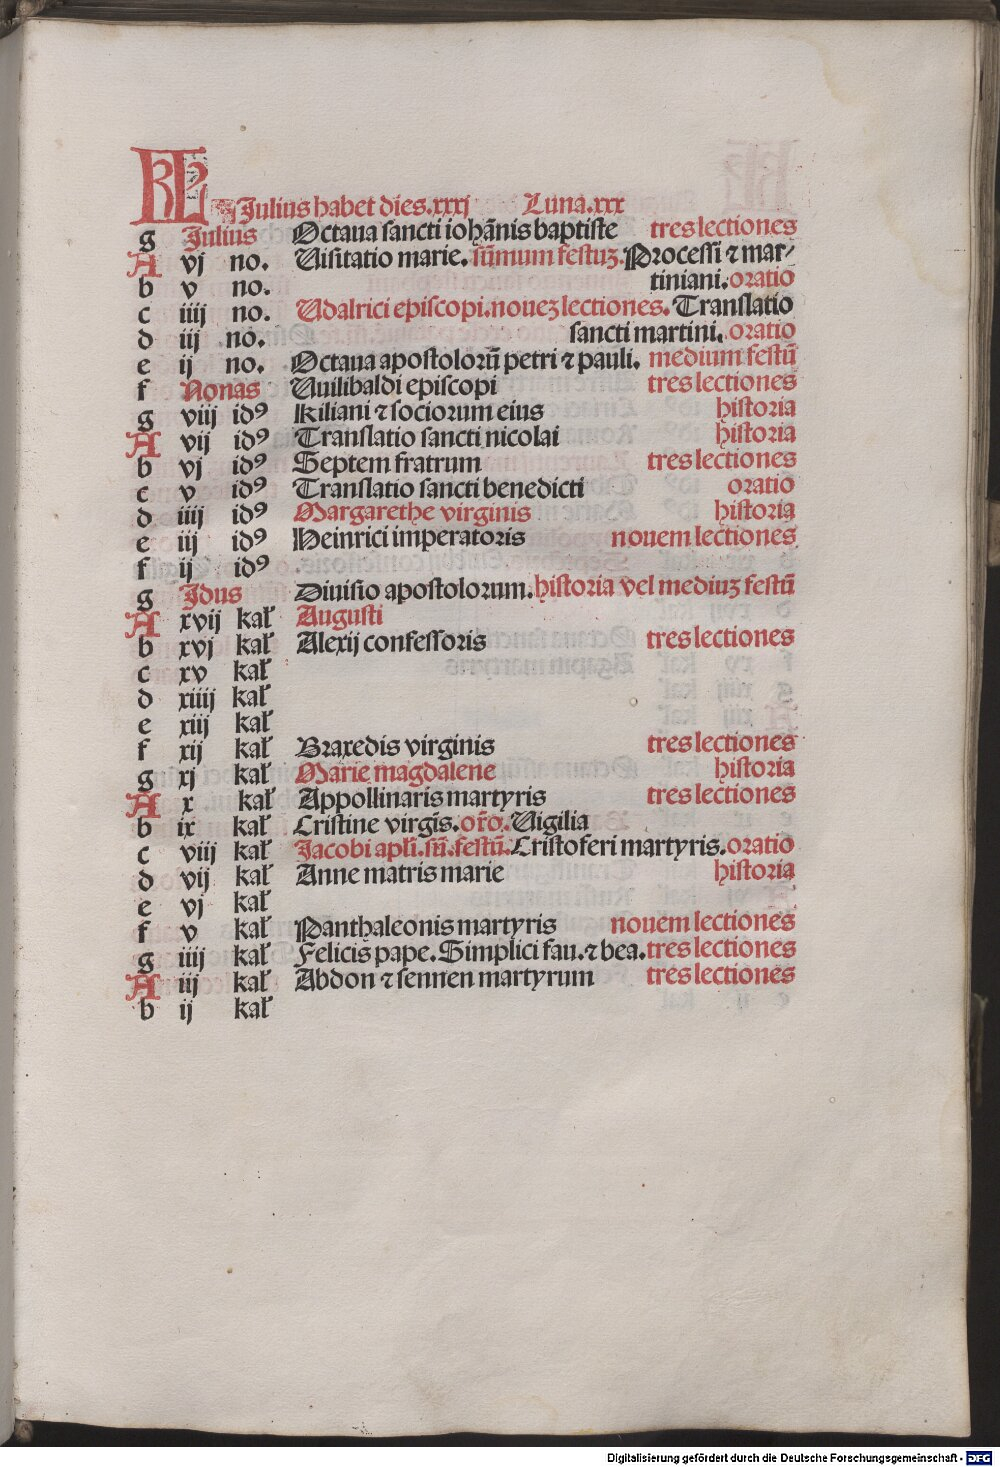 KL Julius habet dies.xxxj Luna.xxx
g Julius Octaua sancti iohãnis baptiste tres lectiones
A vj no. Uisitatio marie. sũmum festuꝫ. Processi ⁊ mar-
b v no. tiniani. oratio
c iiij no. Udalrici episcopi. noueꝫ lectiones. Translatio
d iij no. sancti martini. oratio
e ij no. Octaua apostolorũ petri ⁊ pauli. medium festũ
f Nonas Wilibaldi episcopi tres lectiones
g viij idꝰ Kiliani ⁊ sociorum eius historia
A vij idꝰ Translatio sancti nicolai historia
b vj idꝰ Septem fratrum tres lectiones
c v idꝰ Translatio sancti benedicti oratio
d iiij idꝰ Margarethe virginis historia
e iij idꝰ Heinrici imperatoris nouem lectiones
f ij idꝰ
g Jdus Diuisio apostolorum. historia vel mediuꝫ festũ
A xvij kał Augusti
b xvj kał Alexij confessoris tres lectiones
c xv kał
d xiiij kał
e xiij kał
f xij kał Braxedis virginis tres lectiones
g xj kał Marie magdalene historia
A x kał Appollinaris martyris tres lectiones
b ix kał Cristine virgĩs. or̃o. Uigilia
c viij kał Jacobi apl̃i. sũ. festũ. Cristoferi martyris. oratio
d vij kał Anne matris marie historia
e vj kał
f v kał Panthaleonis martyris nouem lectiones
g iiij kał Felicis pape. Simplici fau. ⁊ bea. tres lectiones
A iij kał Abdon ⁊ sennen martyrum tres lectiones
b ij kał
Digitalisierung gefördert durch die Deutsche Forschungsgemeinschaft - DFG